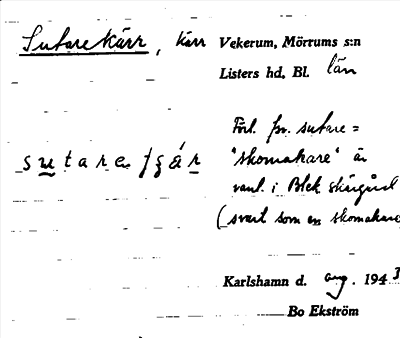 Sutarekärr, kärr Vekerum, Mörrums s:n
Listers hd, Bl. län
Förl. fr. sutare =
sutareʃʒár "skomakare" är
vanl. i Blek skärgård
(svart som en skomakare
Karlshamn d. aug. 1943
Bo Ekström